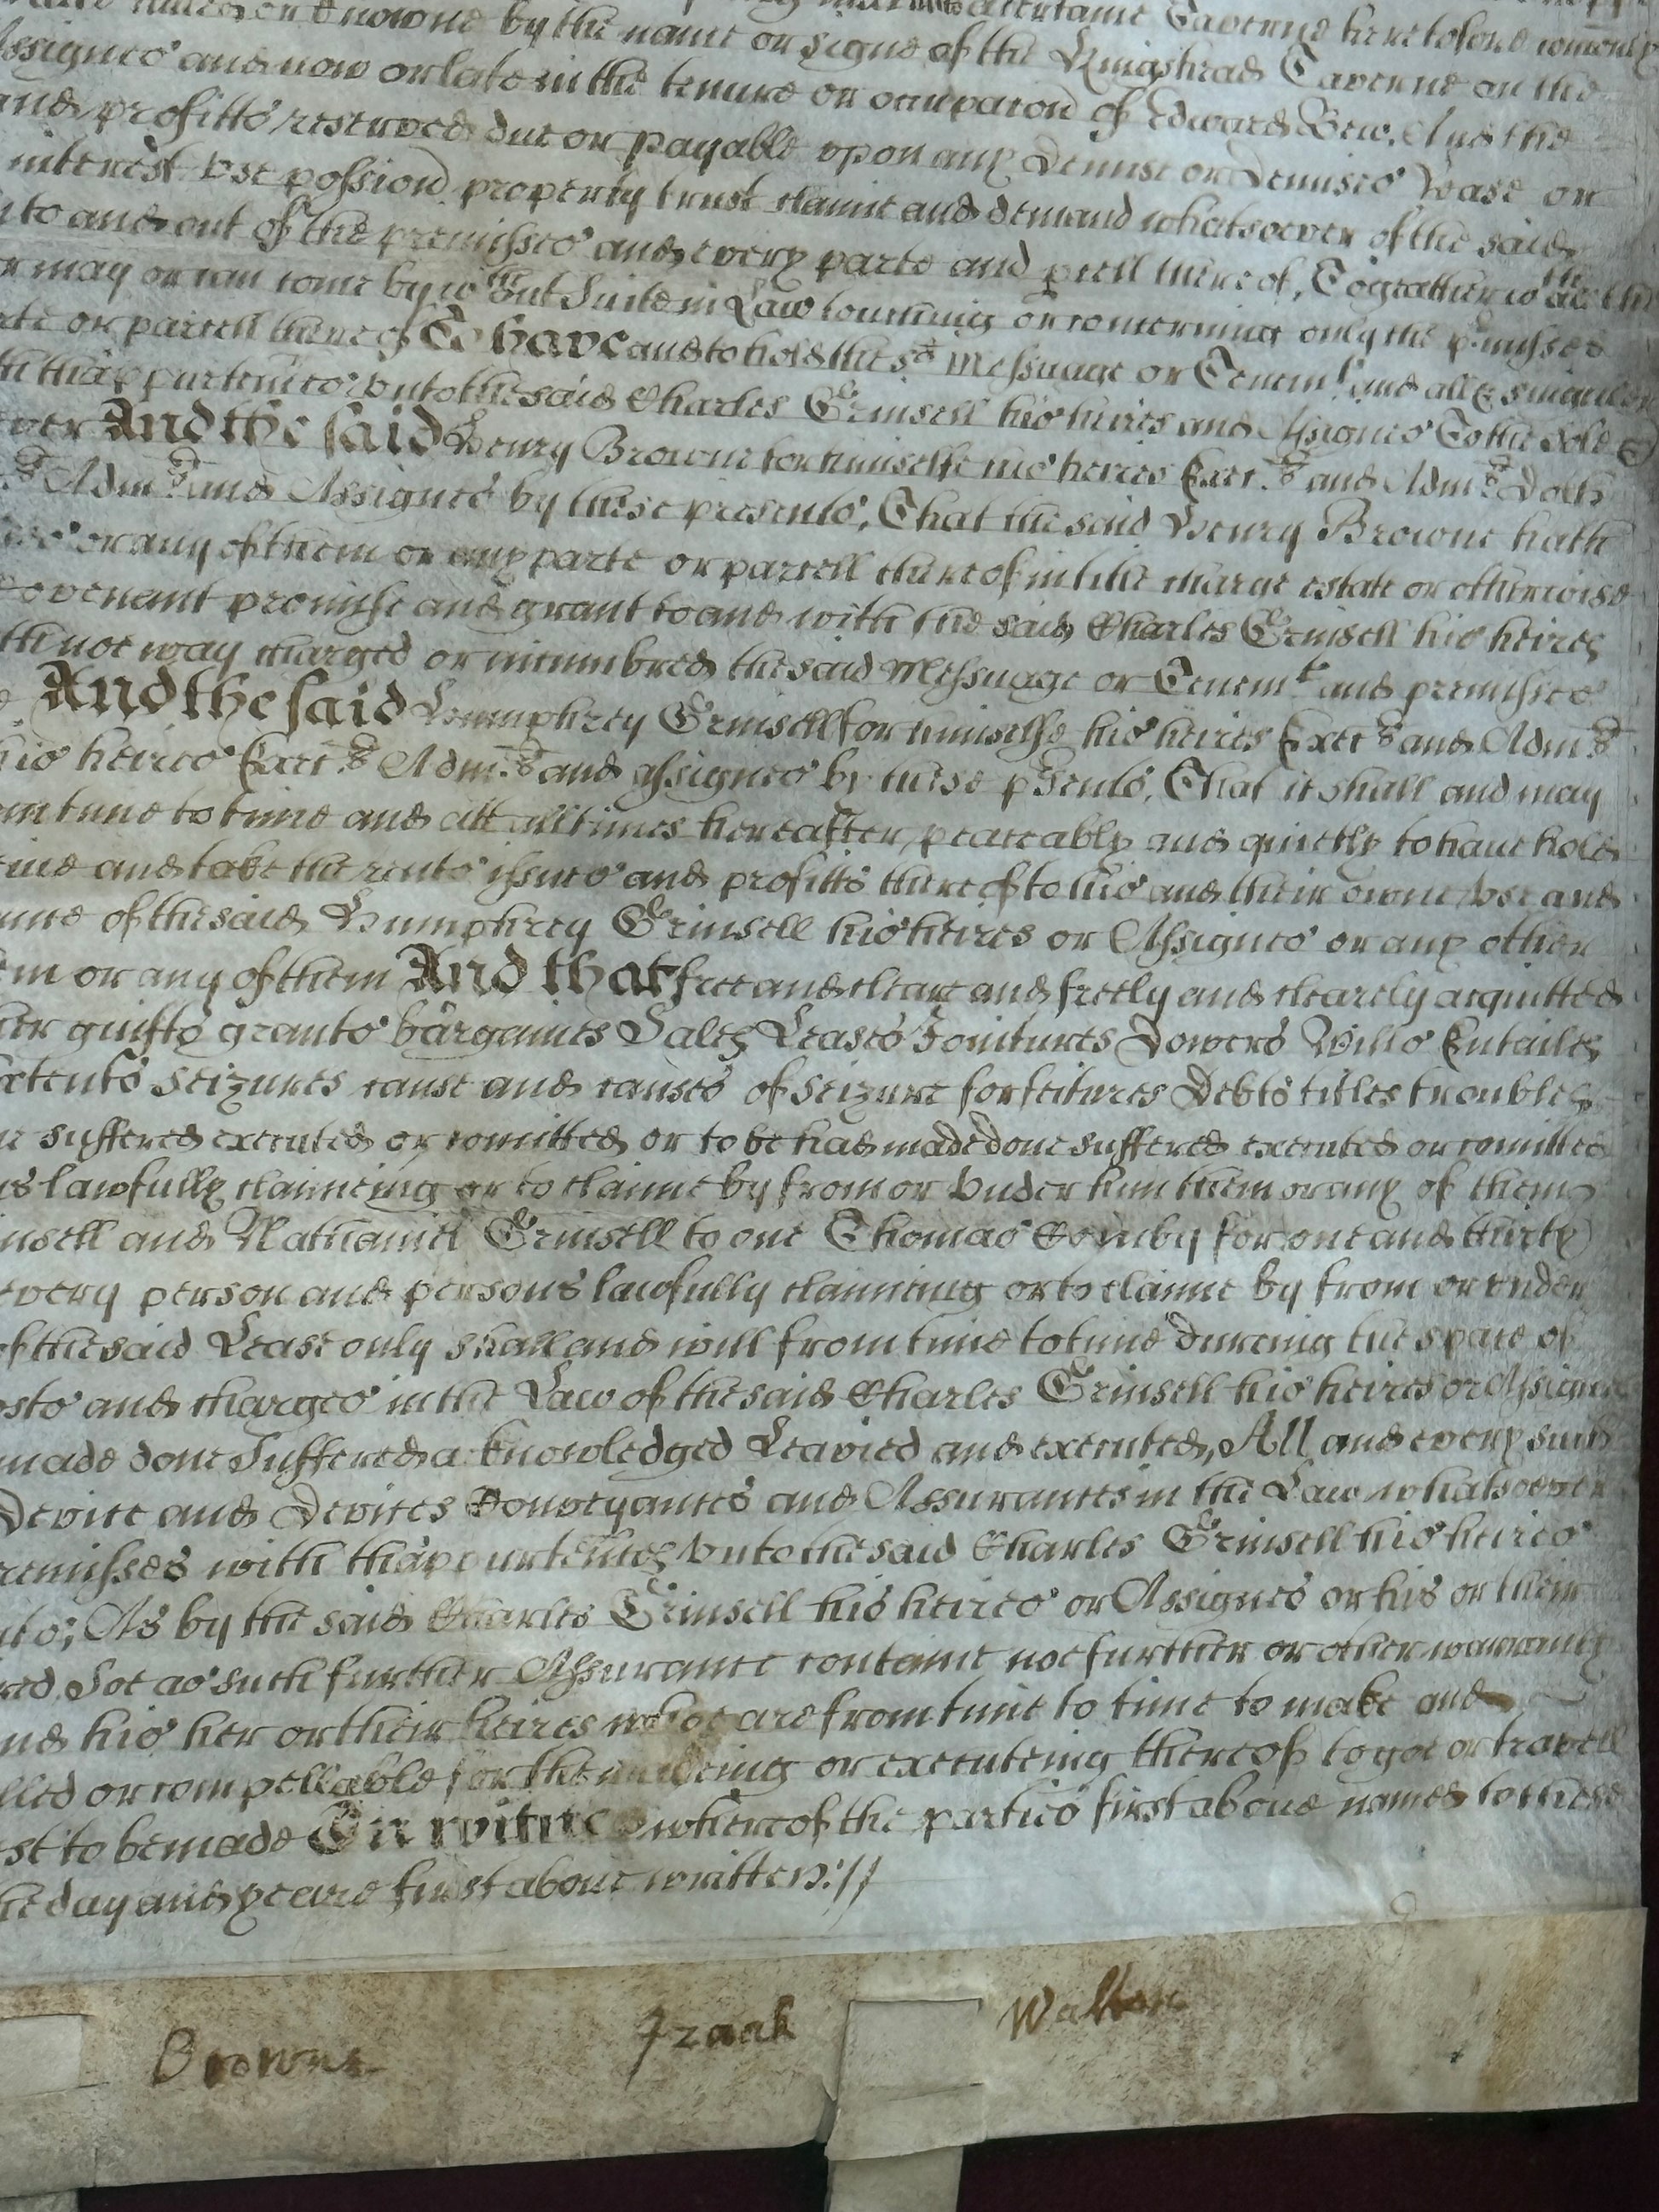 knowne by the name or signe of the Kingshead Taverne on the
Assignes and now or late in the tenure or occupacon of Edward Bew, And the
and profitts reserved due or payable upon any Demise or Demises Lease or
interest Use possion property trust claime and demand whatsoever of the said
to and out of the premisses and every parte and pcell thereof, Togeather wth all the
or may or can come by wthout Suite in Law touching or concerning only the pmisses
parcell thereof To have and to hold the sd Messuage or Tenemt and all & singuler
thappurtennces unto the said Charles Grinsell his heires and Assignes To the sole &
And the said Henry Browne for himselfe his heires Exers and Adms Doth
Adms and Assignes by these presents, That the said Henry Browne hath
or any of them or any parte or parcell thereof in title charge estate or otherwise
Covenant promise and grant to and with the said Charles Grinsell his heires
not way charged or incumbred the said Messuage or Tenemt and premisses
And the said Humphrey Grinsell for himselfe his heires Exers and Adms
his heires Exers Adms and assignes by these psents, That it shall and may
time to time and att all times hereafter peaceably and quietly to have hold
and take the rents issues and profitts thereof to his and their owne use and
of the said Humphrey Grinsell his heires or Assignes or any other
or any of them And that free and cleare and freely and clearely acquitted
guifts grants bargaines Sales Leases Joinctures Dowers Wills Entailes
extents seizures cause and causes of seizure forfeitures Debts titles troubles
suffered executed or comitted or to be had made done suffered executed or comitted
lawfully claimeing or to claime by from or under him them or any of them
and Nathaniel Grinsell to one Thomas for one and thirty
every person and persons lawfully claimeing or to claime by from or under
of the said Lease only shall and will from time to time dureing the space of
and charges in the Law of the said Charles Grinsell his heires or Assignes
made done Suffered acknowledged Leavied and executed, All and every such
Device and Devices Conveyances and Assurances in the Law whatsoever
premisses with thappurtennces unto the said Charles Grinsell his heires
As by the said Charles Grinsell his heires or Assignes or his or their
Soe as such further Assurance containe noe further or other warranty
his her or their heires whoe are from time to time to make and
or compellable for the makeing or executeing thereof to goe or travell
to be made In witnes whereof the parties first above named to these
day and yeare first above written://
Browne Izaak Walton